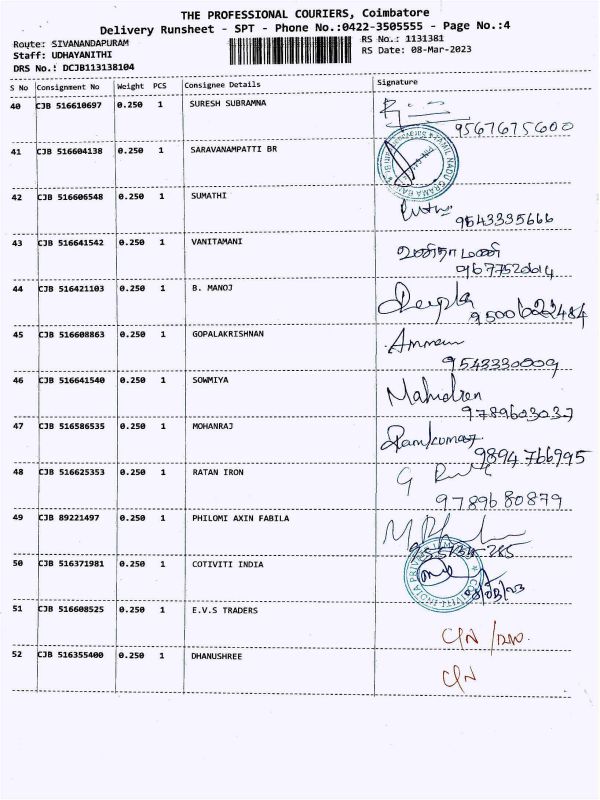 THE PROFESSIONAL COURIERS, Coimbatore
Delivery Runsheet - SPT - Phone No.:0422-3505555 - Page No.:4
Route: SIVANANDAPURAM
RS No.: 1131381
Staff: UDHAYANITHI
RS Date: 08-Mar-2023
DRS No.: DCJB113138104
S No Consignment No Weight PCS Consignee Details Signature
40 CJB 516610697 0.250 1 SURESH SUBRAMNA
9567675600
41 CJB 516604138 0.250 1 SARAVANAMPATTI BR
TAMIL NADU GRAMA BANK
42 CJB 516606548 0.250 1 SUMATHI
9543335666
43 CJB 516641542 0.250 1 VANITAMANI
வனிதாமணி
9677520014
44 CJB 516421103 0.250 1 B. MANOJ
Deepka
9500622484
45 CJB 516608863 0.250 1 GOPALAKRISHNAN
Amman
9543330009
46 CJB 516641540 0.250 1 SOWMIYA
Mahidren
9789603037
47 CJB 516586535 0.250 1 MOHANRAJ
Ramkumar
9894766995
48 CJB 516625353 0.250 1 RATAN IRON
9789680879
49 CJB 89221497 0.250 1 PHILOMI AXIN FABILA
50 CJB 516371981 0.250 1 COTIVITI INDIA
COTIVITI INDIA PRIVATE LIMITED
08/03/23
51 CJB 516608525 0.250 1 E.V.S TRADERS
C/N
52 CJB 516355400 0.250 1 DHANUSHREE
C/N